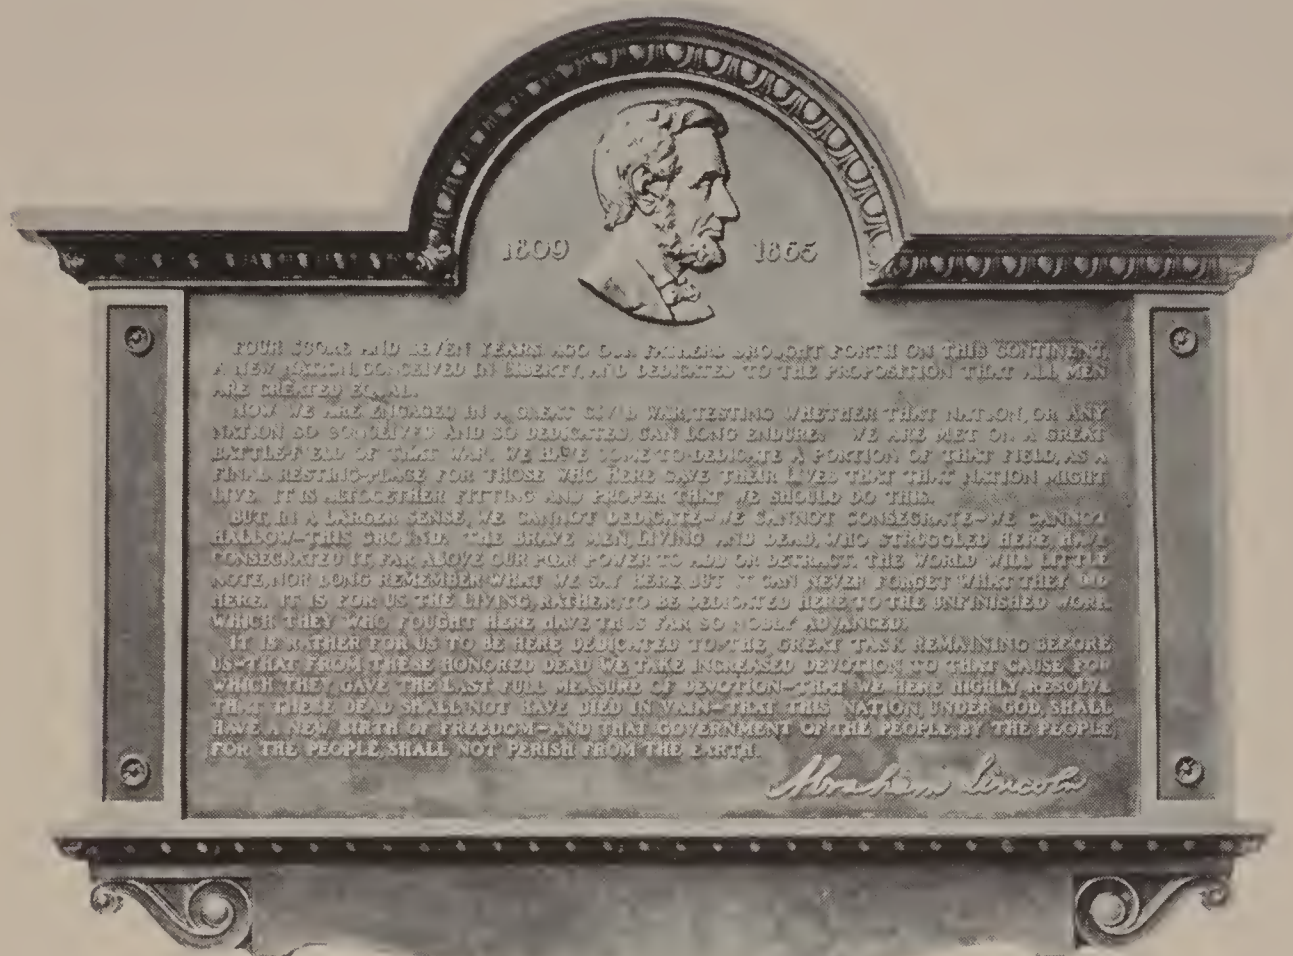 1809 1865
FOUR SCORE AND SEVEN YEARS AGO OUR FATHERS BROUGHT FORTH ON THIS CONTINENT,
A NEW NATION, CONCEIVED IN LIBERTY, AND DEDICATED TO THE PROPOSITION THAT ALL MEN
ARE CREATED EQUAL.
NOW WE ARE ENGAGED IN A GREAT CIVIL WAR, TESTING WHETHER THAT NATION, OR ANY
NATION SO CONCEIVED AND SO DEDICATED, CAN LONG ENDURE. WE ARE MET ON A GREAT
BATTLE-FIELD OF THAT WAR. WE HAVE COME TO DEDICATE A PORTION OF THAT FIELD, AS A
FINAL RESTING-PLACE FOR THOSE WHO HERE GAVE THEIR LIVES THAT THAT NATION MIGHT
LIVE. IT IS ALTOGETHER FITTING AND PROPER THAT WE SHOULD DO THIS.
BUT, IN A LARGER SENSE, WE CANNOT DEDICATE—WE CANNOT CONSECRATE—WE CANNOT
HALLOW—THIS GROUND. THE BRAVE MEN, LIVING AND DEAD, WHO STRUGGLED HERE, HAVE
CONSECRATED IT FAR ABOVE OUR POOR POWER TO ADD OR DETRACT. THE WORLD WILL LITTLE
NOTE, NOR LONG REMEMBER WHAT WE SAY HERE, BUT IT CAN NEVER FORGET WHAT THEY DID
HERE. IT IS FOR US THE LIVING, RATHER, TO BE DEDICATED HERE TO THE UNFINISHED WORK
WHICH THEY WHO FOUGHT HERE HAVE THUS FAR SO NOBLY ADVANCED.
IT IS RATHER FOR US TO BE HERE DEDICATED TO THE GREAT TASK REMAINING BEFORE
US—THAT FROM THESE HONORED DEAD WE TAKE INCREASED DEVOTION TO THAT CAUSE FOR
WHICH THEY GAVE THE LAST FULL MEASURE OF DEVOTION—THAT WE HERE HIGHLY RESOLVE
THAT THESE DEAD SHALL NOT HAVE DIED IN VAIN—THAT THIS NATION, UNDER GOD, SHALL
HAVE A NEW BIRTH OF FREEDOM—AND THAT GOVERNMENT OF THE PEOPLE, BY THE PEOPLE,
FOR THE PEOPLE, SHALL NOT PERISH FROM THE EARTH.
Abraham Lincoln